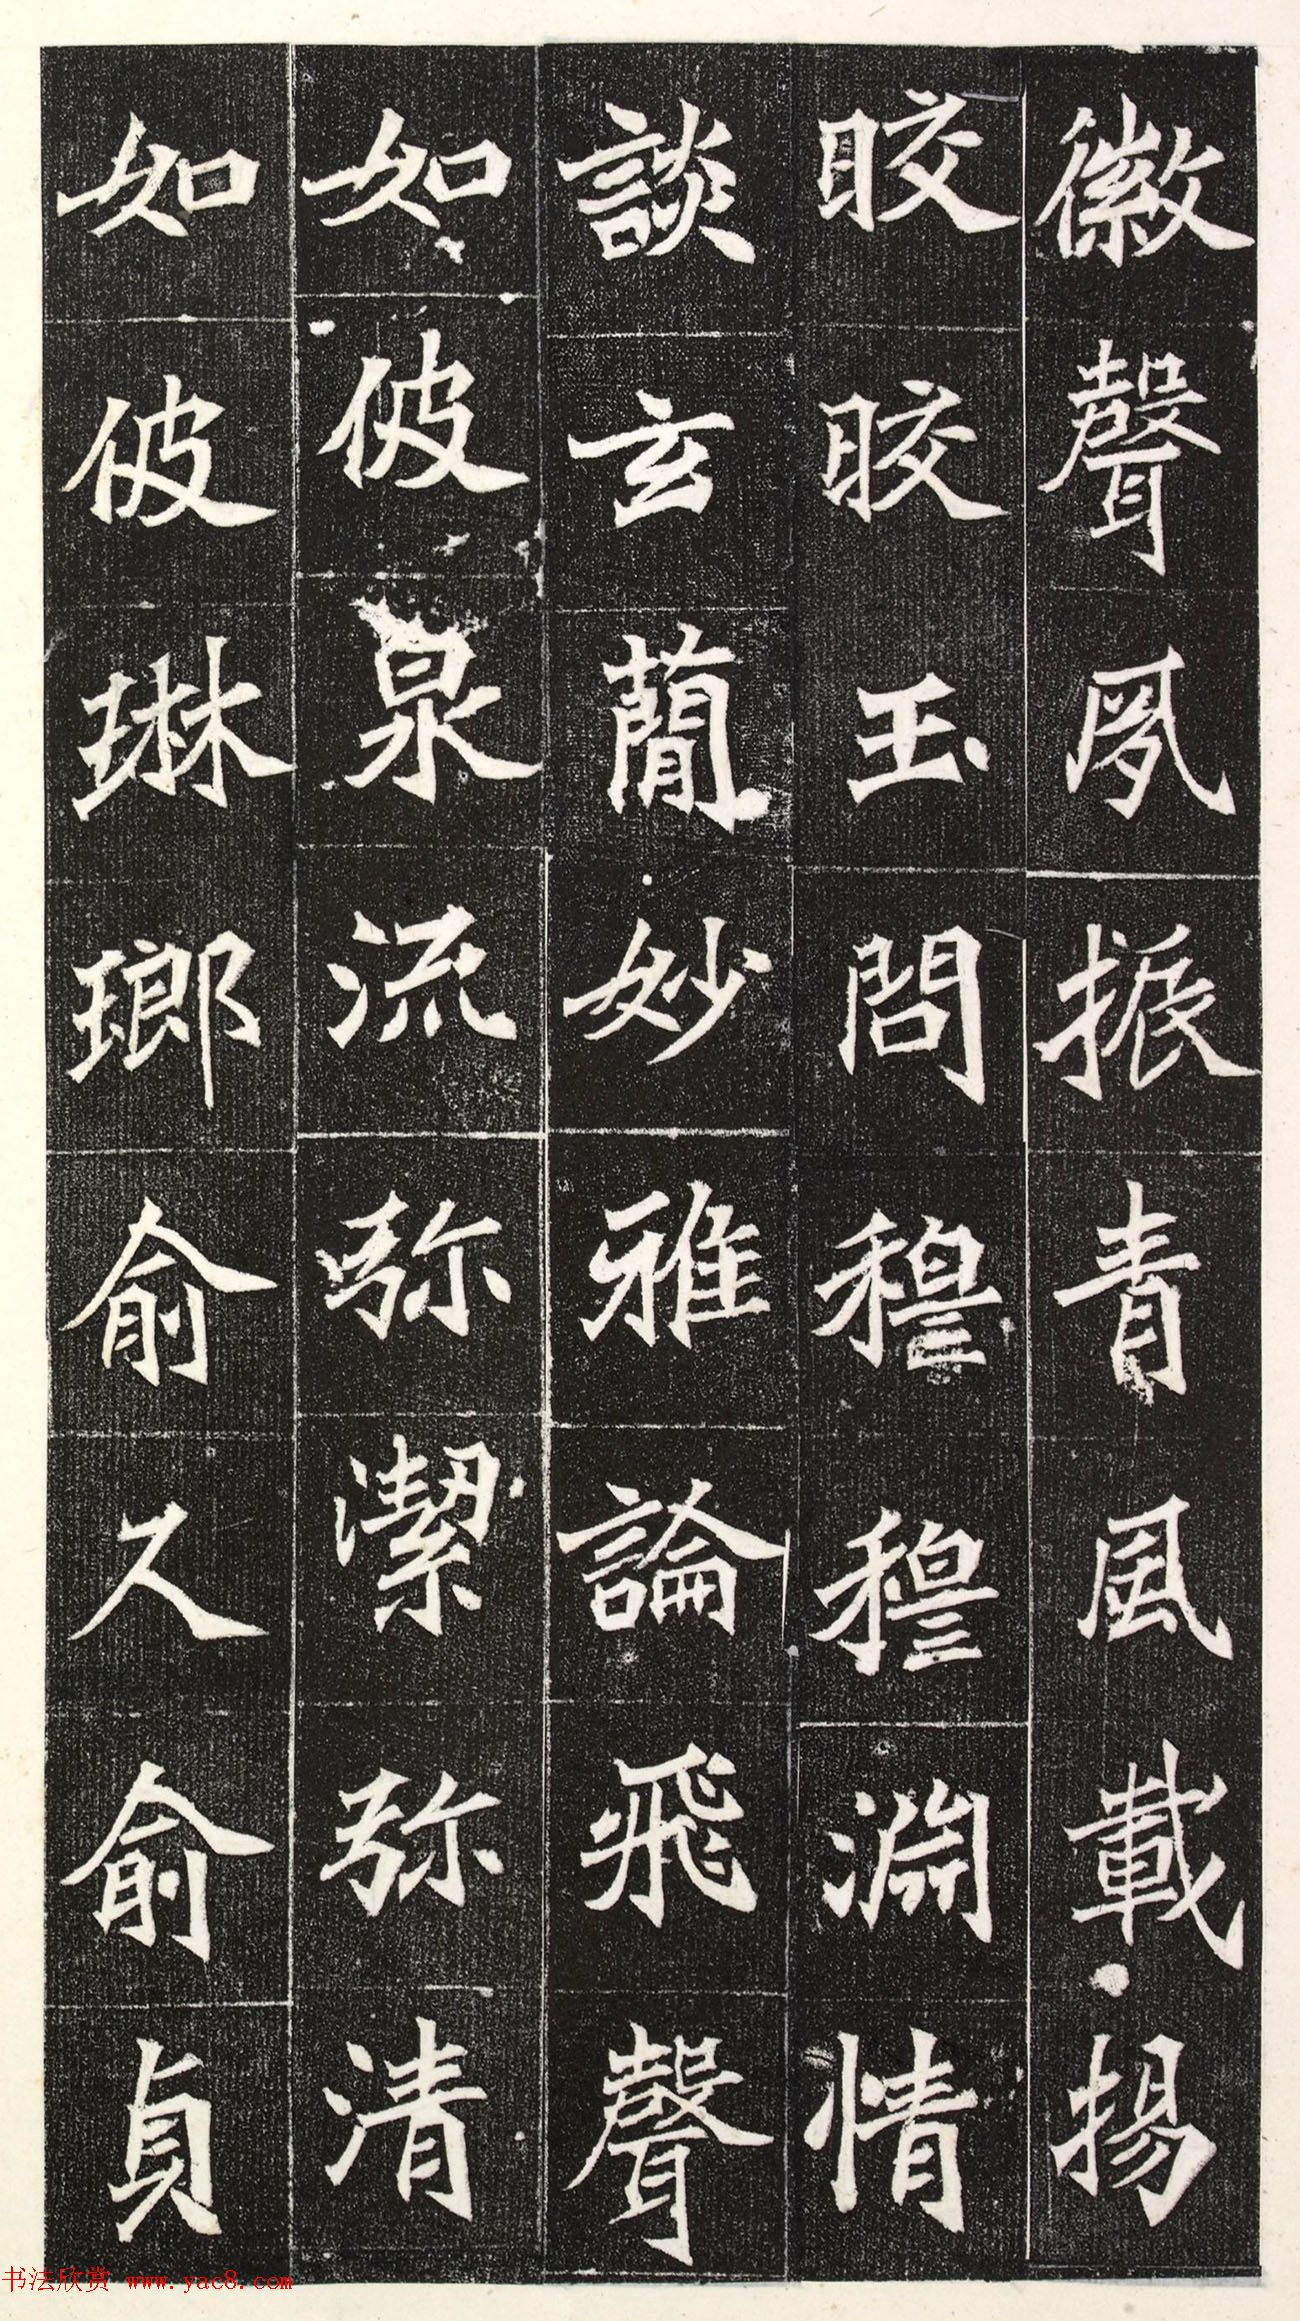 徽聲夙振青風載揚
晈晈玉問穆穆淵情
談玄蕑妙雅論飛聲
如彼泉流弥潔弥清
如彼琳瑯俞久俞貞
书法欣赏 www.yac8.com